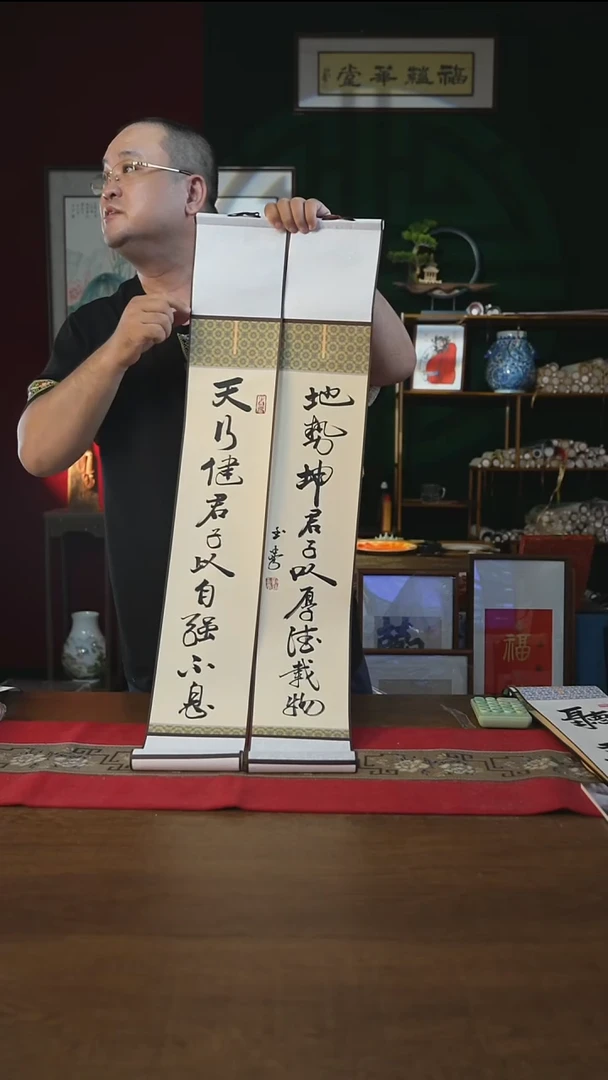 福蘊華堂
天行健君子以自强不息
地勢坤君子以厚德載物
福